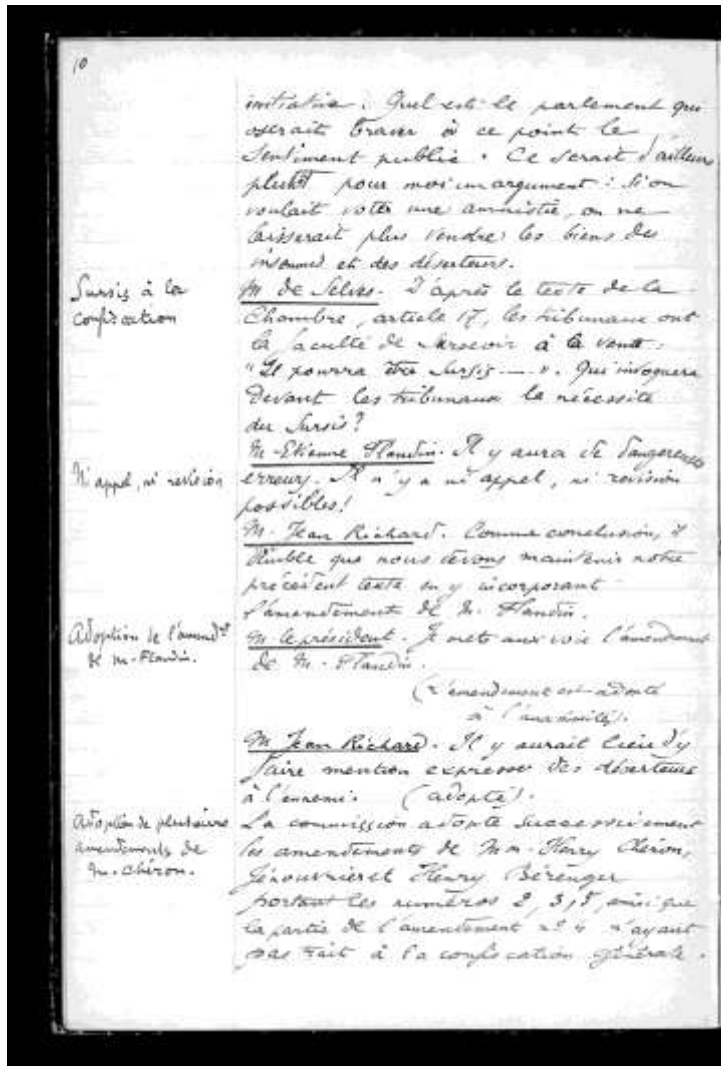 10
initiative. Quel est le parlement qui
oserait braver à ce point le
sentiment public. Ce serait d'ailleurs
plutôt pour moi un argument : si on
voulait voter une amnistie, on ne
laisserait plus vendre les biens des
insoumis et des déserteurs.
Sursis à la
confiscation
M. de Selves. D'après le texte de la
Chambre, article 17, les tribunaux ont
la faculté de surseoir à la vente :
"Il pourra être sursis ---". Qui invoquera
devant les tribunaux la nécessité
du sursis ?
Ni appel, ni revision
M. Etienne Flandin. Il y aura de dangereuses
erreurs. Il n'y a ni appel, ni revision
possibles !
M. Jean Richard. Comme conclusion, il
semble que nous devons maintenir notre
précédent texte en y incorporant
l'amendement de M. Flandin.
Adoption de l'amendt
de M. Flandin.
M. le président. Je mets aux voix l'amendement
de M. Flandin.
(L'amendement est adopté
à l'unanimité).
M. Jean Richard. Il y aurait lieu d'y
faire mention expresse des déserteurs
à l'ennemi. (adopté).
Adoption de plusieurs
amendements de
M. Chéron.
La commission adopte successivement
les amendements de MM. Henry Chéron,
Jénouvrier et Henry Bérenger
portant les numéros 2, 3, 5, ainsi que
la partie de l'amendement n° 4 n'ayant
pas trait à la confiscation générale.